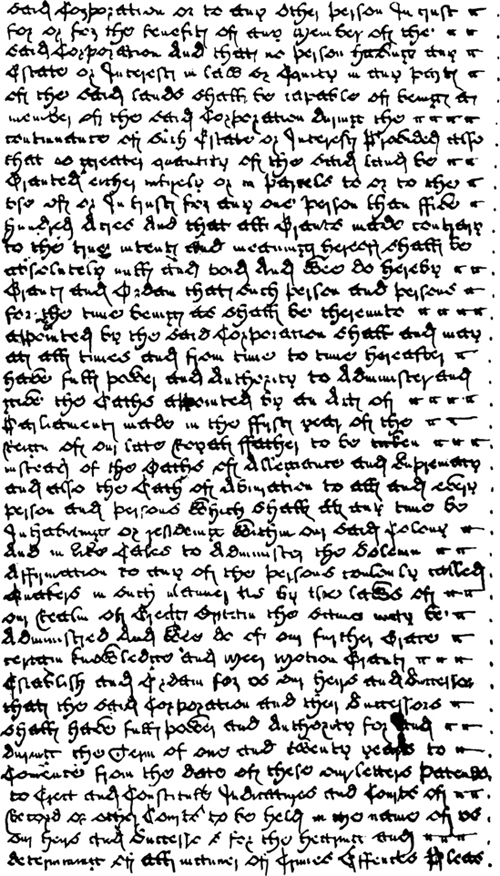 said Corporation or to any other person In trust
for or for the benefitt of any member of the
said Corporation And that no person having any
Estate or Interest in law or Equity in any part
of the said lands shall be capable of being a
member of the said Corporation during the
continuance of such Estate or Interest Provided also
that no greater quantity of the said land be
Granted either intirely or in parcels to or to the
use of or In trust for any one person than ffive
hundred Acres And that all Grants made contrary
to the true intent and meaning hereof shall be
absolutely null and void And Wee do hereby
Grant and Ordain that such person and persons
for the time being as shall be thereunto
appointed by the said Corporation shall and may
att all times and from time to time hereafter
have full power and Authority to Administer and
give the Oaths appointed by an Act of
Parliament made in the ffirst year of the
Reign of our late Royall ffather to be taken
instead of the Oaths of Allegiance and Supremacy
and also the Oath of Abjuration to all and every
person and persons Which shall att any time be
Inhabiting or residing Within our said Colony
And in like Cases to Administer the Solemn
Affirmation to any of the persons comonly called
Quakers in such manner as by the laws of
our Realm of Great Britain the same may be
Administred And Wee do of our further Grace
certain knowledge and meer motion Grant
Establish and Ordain for us our heirs and Successors
that the said Corporation and their Successors
shall have full power and Authority for and
during the Term of one and twenty years to
Comence from the date of these our letters Patents
to Erect and Constitute Judicatures and Courts of
Record or other Courts to be held in the name of us
our heirs and Successors for the hearing and
determining of all manner of Crimes Offences Pleas